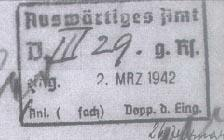 Auswärtiges Amt
D. III 29. g. Rs.
eing. 2. MRZ 1942
Anl. ( fach) Dopp. d. Eing.